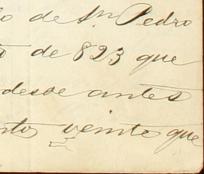 de Sn Pedro
de 823 que
desde antes
nto veinte que